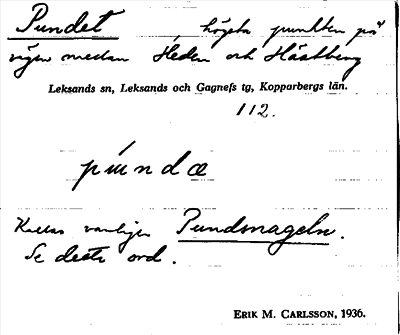 Pundet högsta punkten på
vägen mellan Heden och Hästberg
Leksands sn, Leksands och Gagnefs tg, Kopparbergs län.
112.
pundæ
Kallas vanligen Pundsnageln.
Se detta ord.
ERIK M. CARLSSON, 1936.